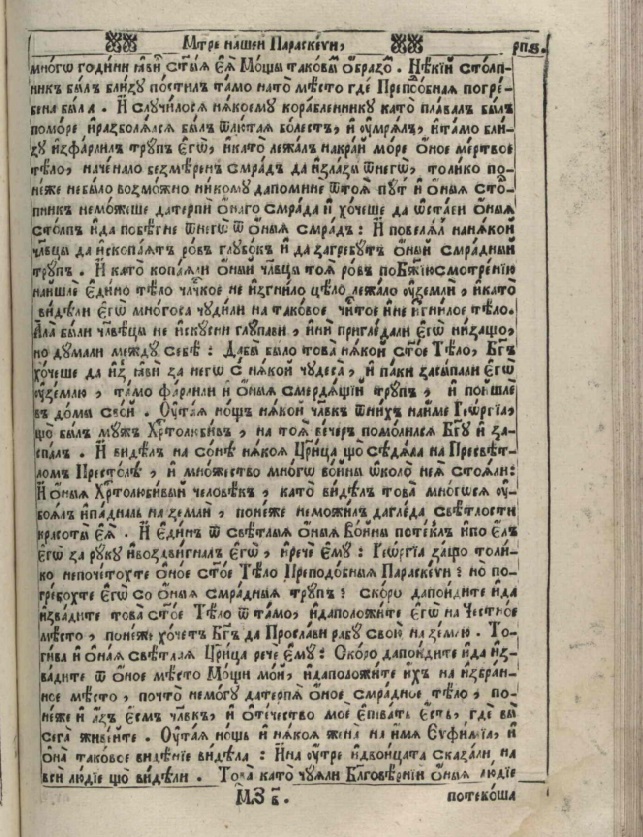 Мт҃ре нашеи Параскеѵи, рп҃ѕ.
многѡ години ꙗ҆ви ст҃ыѧ є҆ѧ̀ Мощы такѡвы́м ѻ҆бразо́м . Нѣкїй сто́лп-
никъ былъ близу по́стилъ та́мо на то̀ мѣсто где́ Преп҃бнаѧ погре-
бена была . И҆ случилосѧ нѧкоему кораблеинику като̀ плавалъ былъ
по море и҆ разболѧлсѧ былъ ѿ лю́таѧ бо́лестъ, и҆ оу҆мрѧлъ, и҆ та́мо бли-
зу и҆зфарлилъ трупъ є҆гѡ̀, и҆ като̀ лежалъ накрай мо́ре ѻ҆ное ме́ртвое
тѣло, начена́ло безмѣренъ смра́дъ да и҆злазы ѿ негѡ̀, толико по-
неже не было возможно никому да помине ѿ тоѧ̀ пут и҆ ѻ҆ныѧ сто́-
пникъ неможѣше да терпѝ ѻ҆наго смра́да и҆ хо́чеше да ѡ҆ста́ви ѻ҆ныѧ
сто́лпъ и҆ да побѣгне ѿ негѡ̀ ѿ ѻ҆ныѧ смра́дъ : И҆ повелѧлъ на нѧкой
чл҃вцы да и҆скопаѧтъ ро́въ глубокъ и҆ да загребутъ ѻ҆ный смра́дный
трупъ . И҆ като копаѧли ѻ҆ный чл҃вцы тоѧ ро́въ по Бж҃їю смотренїю
найшле є҆дино тѣло чл҃кое не и҆згнило цѣло лежало оу҆ земли , и҆ като
видѣли є҆гѡ̀ многосѧ чудили на таковое чи́тое и҆ не и҆гнилое тѣло.
А҆ла были чл҃вѣцы не и҆скусни глупави , и҆ни приглѣдали є҆гѡ̀ ни зацо,
но думали между себѣ : Да бы̀ было това̀ нѧкой ст҃ое Тѣло, Бг҃ъ
хо́чеше да и҆з̾ꙗ҆ви за него с нѧкой чудеса̀, и҆ паки засыпали є҆гѡ̀
оу҆ землю , та́мо фарлили и҆ ѻ҆ныѧ смердѧщїй трупъ , и҆ пойшле
въ домы свои . Оу҆таѧ но́щъ нѧкой чл҃вкъ ѿ нихъ на и҆ме Геѡргїа,
що былъ мужъ Хр҃толюбивъ , на тоѧ̀ вечеръ помолилсѧ Бг҃у и҆ за-
спалъ . И҆ видѣлъ на сонѣ нѧкоѧ Цр҃ица що сѣдѧла на Пресвѣт-
ломъ Престолѣ , и҆ множество многѡ во́ини ѡколо неѧ̀ стоѧли :
И҆ ѻ҆ныѧ Хр҃толюбивый человѣкъ , като видѣлъ това̀ многосѧ оу҆-
боѧлъ и҆ падналъ на земли , понеже неможилъ да гледа свѣтлости
красоты̀ є҆ѧ̀ . И҆ є҆динъ ѿ свѣтлыѧ ѻ҆ныѧ Во́ины потеклъ и҆ поелъ
є҆гѡ̀ за руку и҆ воздвигналъ є҆гѡ̀ , и҆ рече є҆му : Геѡргїа защо толи-
ко непочитохте ѻ҆ное ст҃ое Тѣло Преподо́бныѧ Параскеѵи ? но̀ по-
гребохте є҆гѡ̀ со ѻ҆ныѧ смра́дныѧ трупъ ? ско́ро да пойдите и҆ да
и҆звадите това̀ ст҃ое Тѣло ѿ та́мо , и҆ даположите є҆гѡ̀ на Честное
мѣсто , понеже хочетъ Бг҃ъ да Прослави рабу свою на землю . То-
гива и҆ ѻ҆наѧ свѣтлаѧ Цр҃ица рече є҆му : Ско́ро да пойдите и҆ да и҆з-
вадите ѿ ѻ҆ное мѣсто Мощи мои , и҆ даположите и҆хъ на и҆збран-
ное мѣсто , почто немогу да терпѧ̀ ѻ҆ное смра́дное тѣло , по-
неже и҆ а҆зъ є҆смъ чл҃вкъ , и҆ ѻ҆течество моѐ Є҆пиватъ є҆сть , где́ вы̀
сега живѣите . Оу҆таѧ нощь и҆ нѧкоѧ жена̀ на и҆мѧ Є҆ѵфимїа, и҆
ѻ҆на̀ таковое видѣнїе видѣла : И҆ на оу҆тре и҆ двоицата сказали на
вси людїе що видѣли . Това като чуѧли Бл҃говѣрнїи ѻ҆ныѧ людїе
М҃З в҃. потекоша